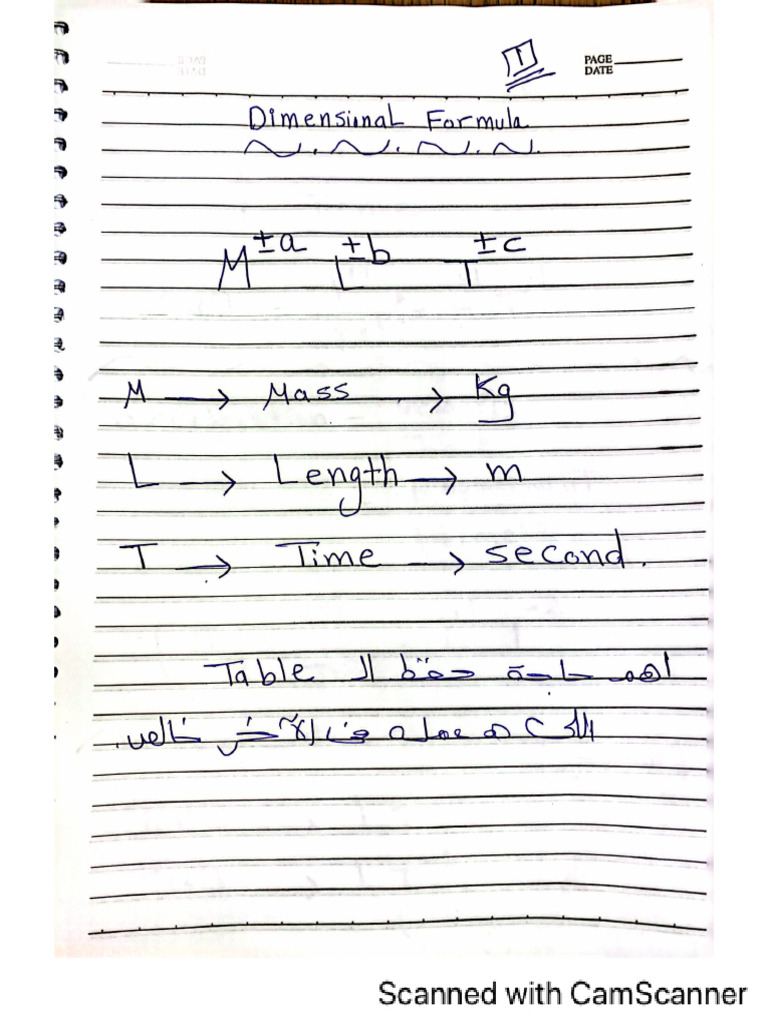 1
PAGE
DATE
Dimensional Formula
M^{±a} L^{±b} T^{±c}
M → Mass → Kg
L → Length → m
T → Time → second.
اهم حاجة حفظ الـ Table
اللى هعمله فى الآخر خالص.
Scanned with CamScanner